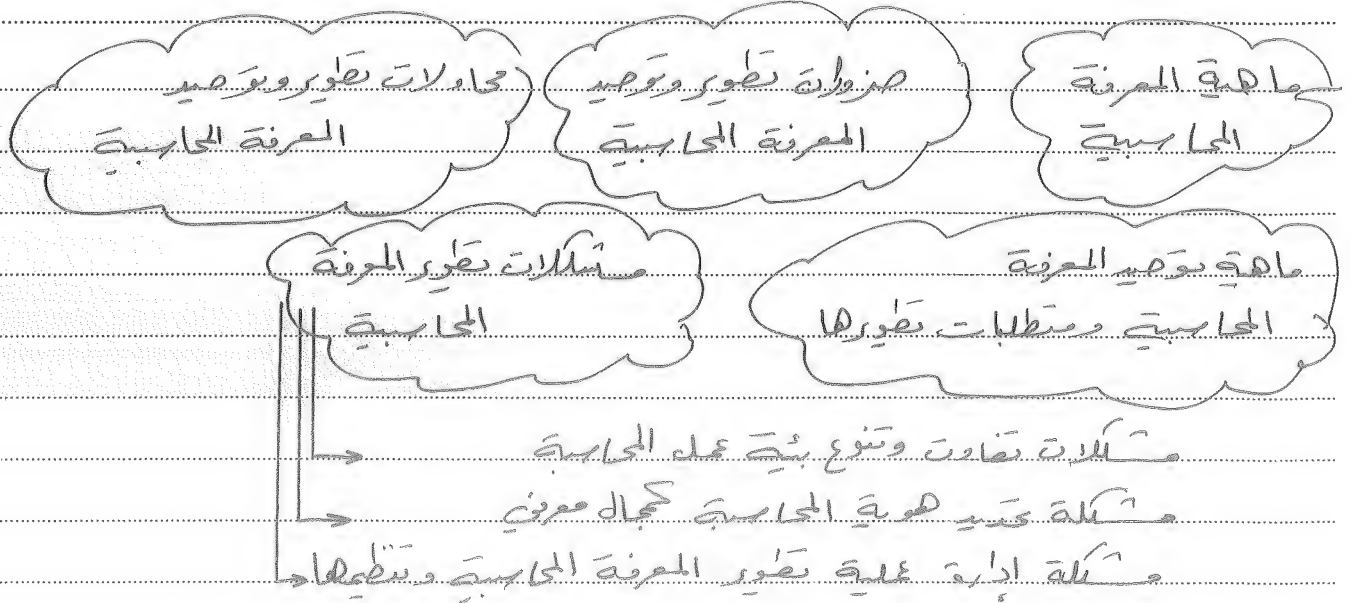 ما هية المعرفة
المحاسبية
ضرورات تطوير وتوحيد
المعرفة المحاسبية
محاولات تطوير وتوحيد
المعرفة المحاسبية
ماهية توحيد المعرفة
المحاسبية ومتطلبات تطويرها
مشكلات تطوير المعرفة
المحاسبية
مشكلات تفاوت وتنوع بيئة عمل المحاسبة
مشكلة تحديد هوية المحاسبة كمجال معرفي
مشكلة إدارة عملية تطوير المعرفة المحاسبية وتنظيمها